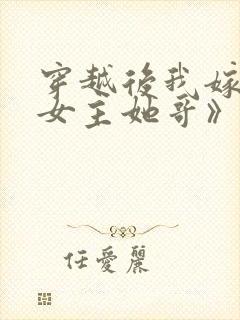 穿越後我嫁
女主她哥》
任愛麗